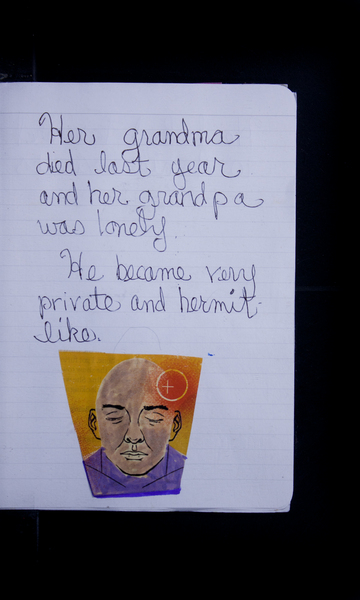 Her grandma
died last year
and her grandpa
was lonely.
He became very
private and hermit-
like.